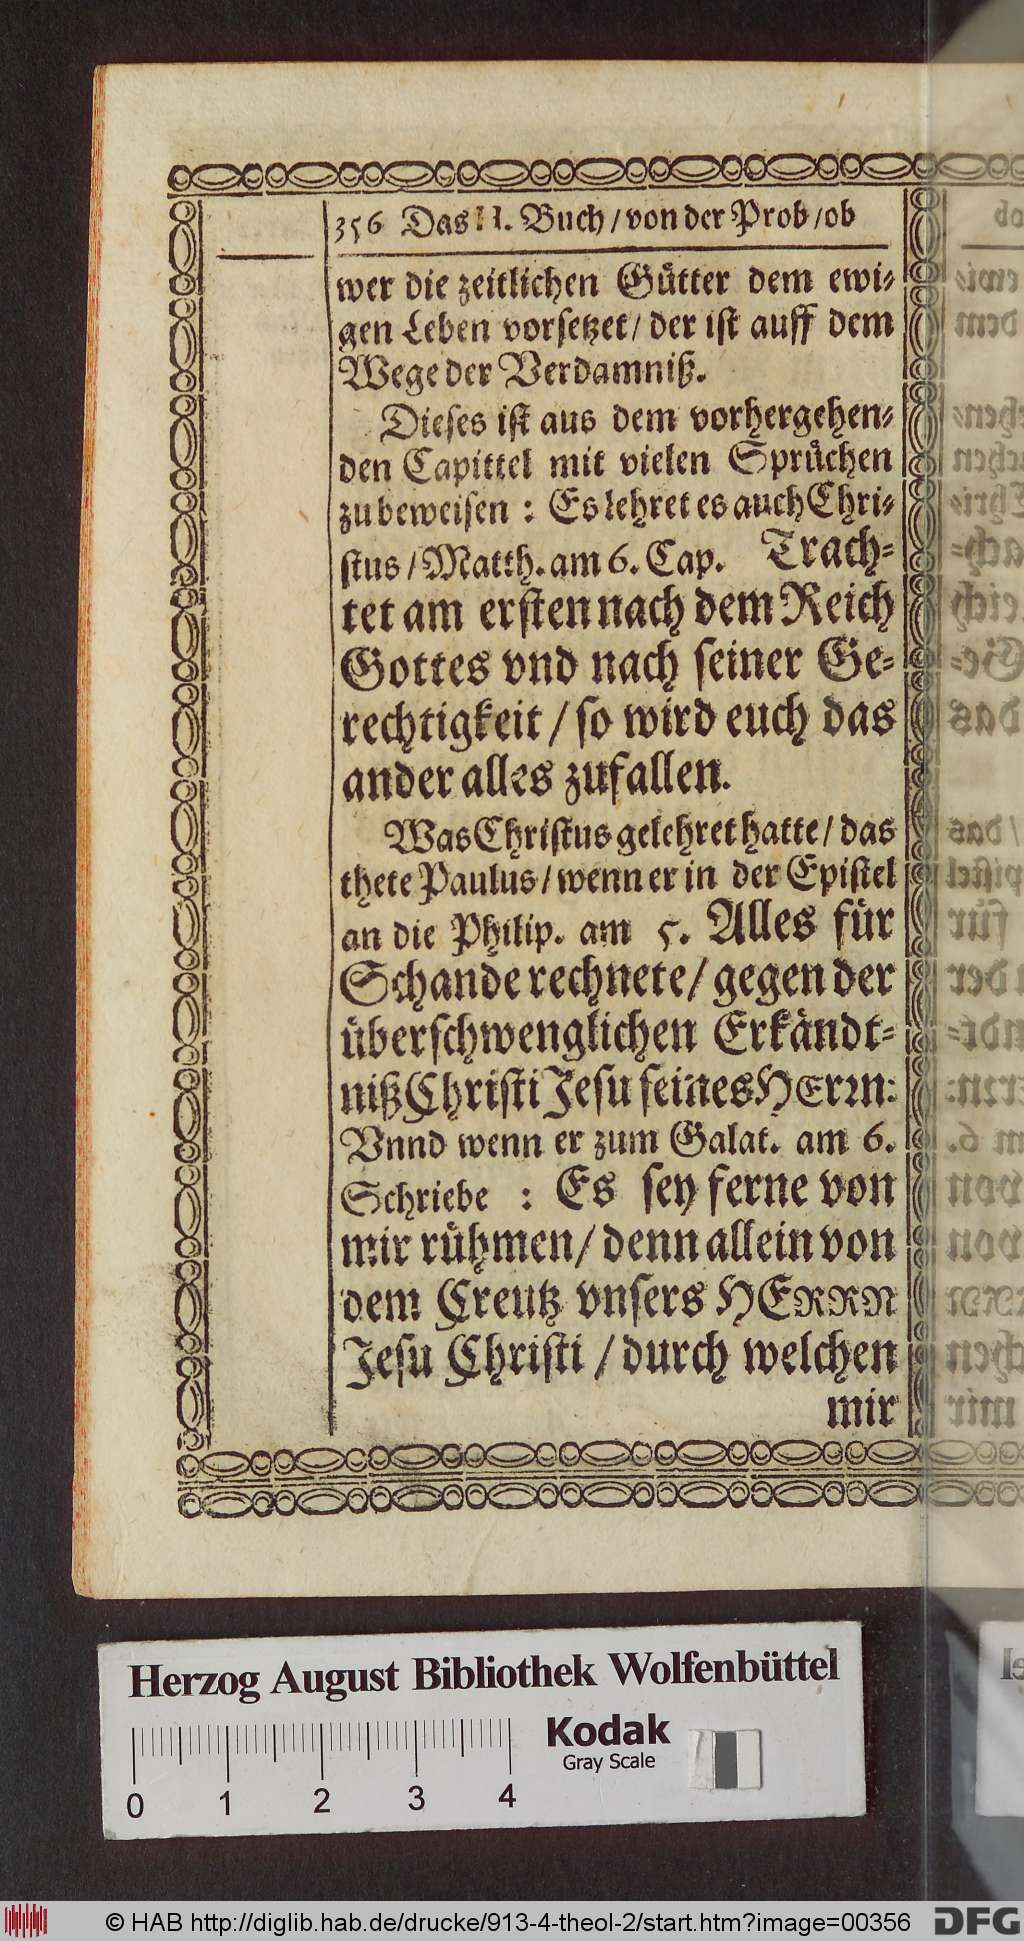 356 Das II. Buch / von der Prob / ob
wer die zeitlichen Gütter dem ewi⸗
gen Leben vorsetzet / der ist auff dem
Wege der Verdamniß.
Dieses ist aus dem vorhergehen⸗
den Capittel mit vielen Sprüchen
zu beweisen : Es lehret es auch Chri⸗
stus / Matth. am 6. Cap. Trach⸗
tet am ersten nach dem Reich
Gottes vnd nach seiner Ge⸗
rechtigkeit / so wird euch das
ander alles zufallen.
Was Christus gelehret hatte / das
thete Paulus / wenn er in der Epistel
an die Philip. am 5. Alles für
Schande rechnete / gegen der
überschwenglichen Erkändt⸗
niß Christi Jesu seines HErrn:
Vnnd wenn er zum Galat. am 6.
Schriebe : Es sey ferne von
mir rühmen / denn allein von
dem Creutz vnsers HERRN
Jesu Christi / durch welchen
mir
Herzog August Bibliothek Wolfenbüttel
Kodak
Gray Scale
0 1 2 3 4
© HAB http://diglib.hab.de/drucke/913-4-theol-2/start.htm?image=00356
DFG